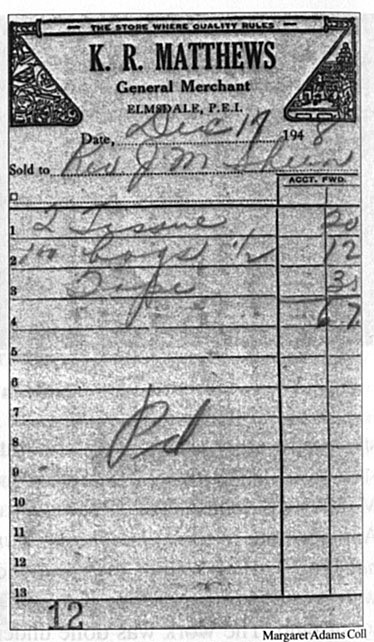 THE STORE WHERE QUALITY RULES
K. R. MATTHEWS
General Merchant
ELMSDALE, P.E.I.
Date, Dec 17 1948
Sold to Rev J M
ACCT. FWD.
1 2 Tissue 20
2 bags 1/2 12
3 Tape 35
4 67
5
6
7
Pd
8
9
10
11
12
13
12
Margaret Adams Coll